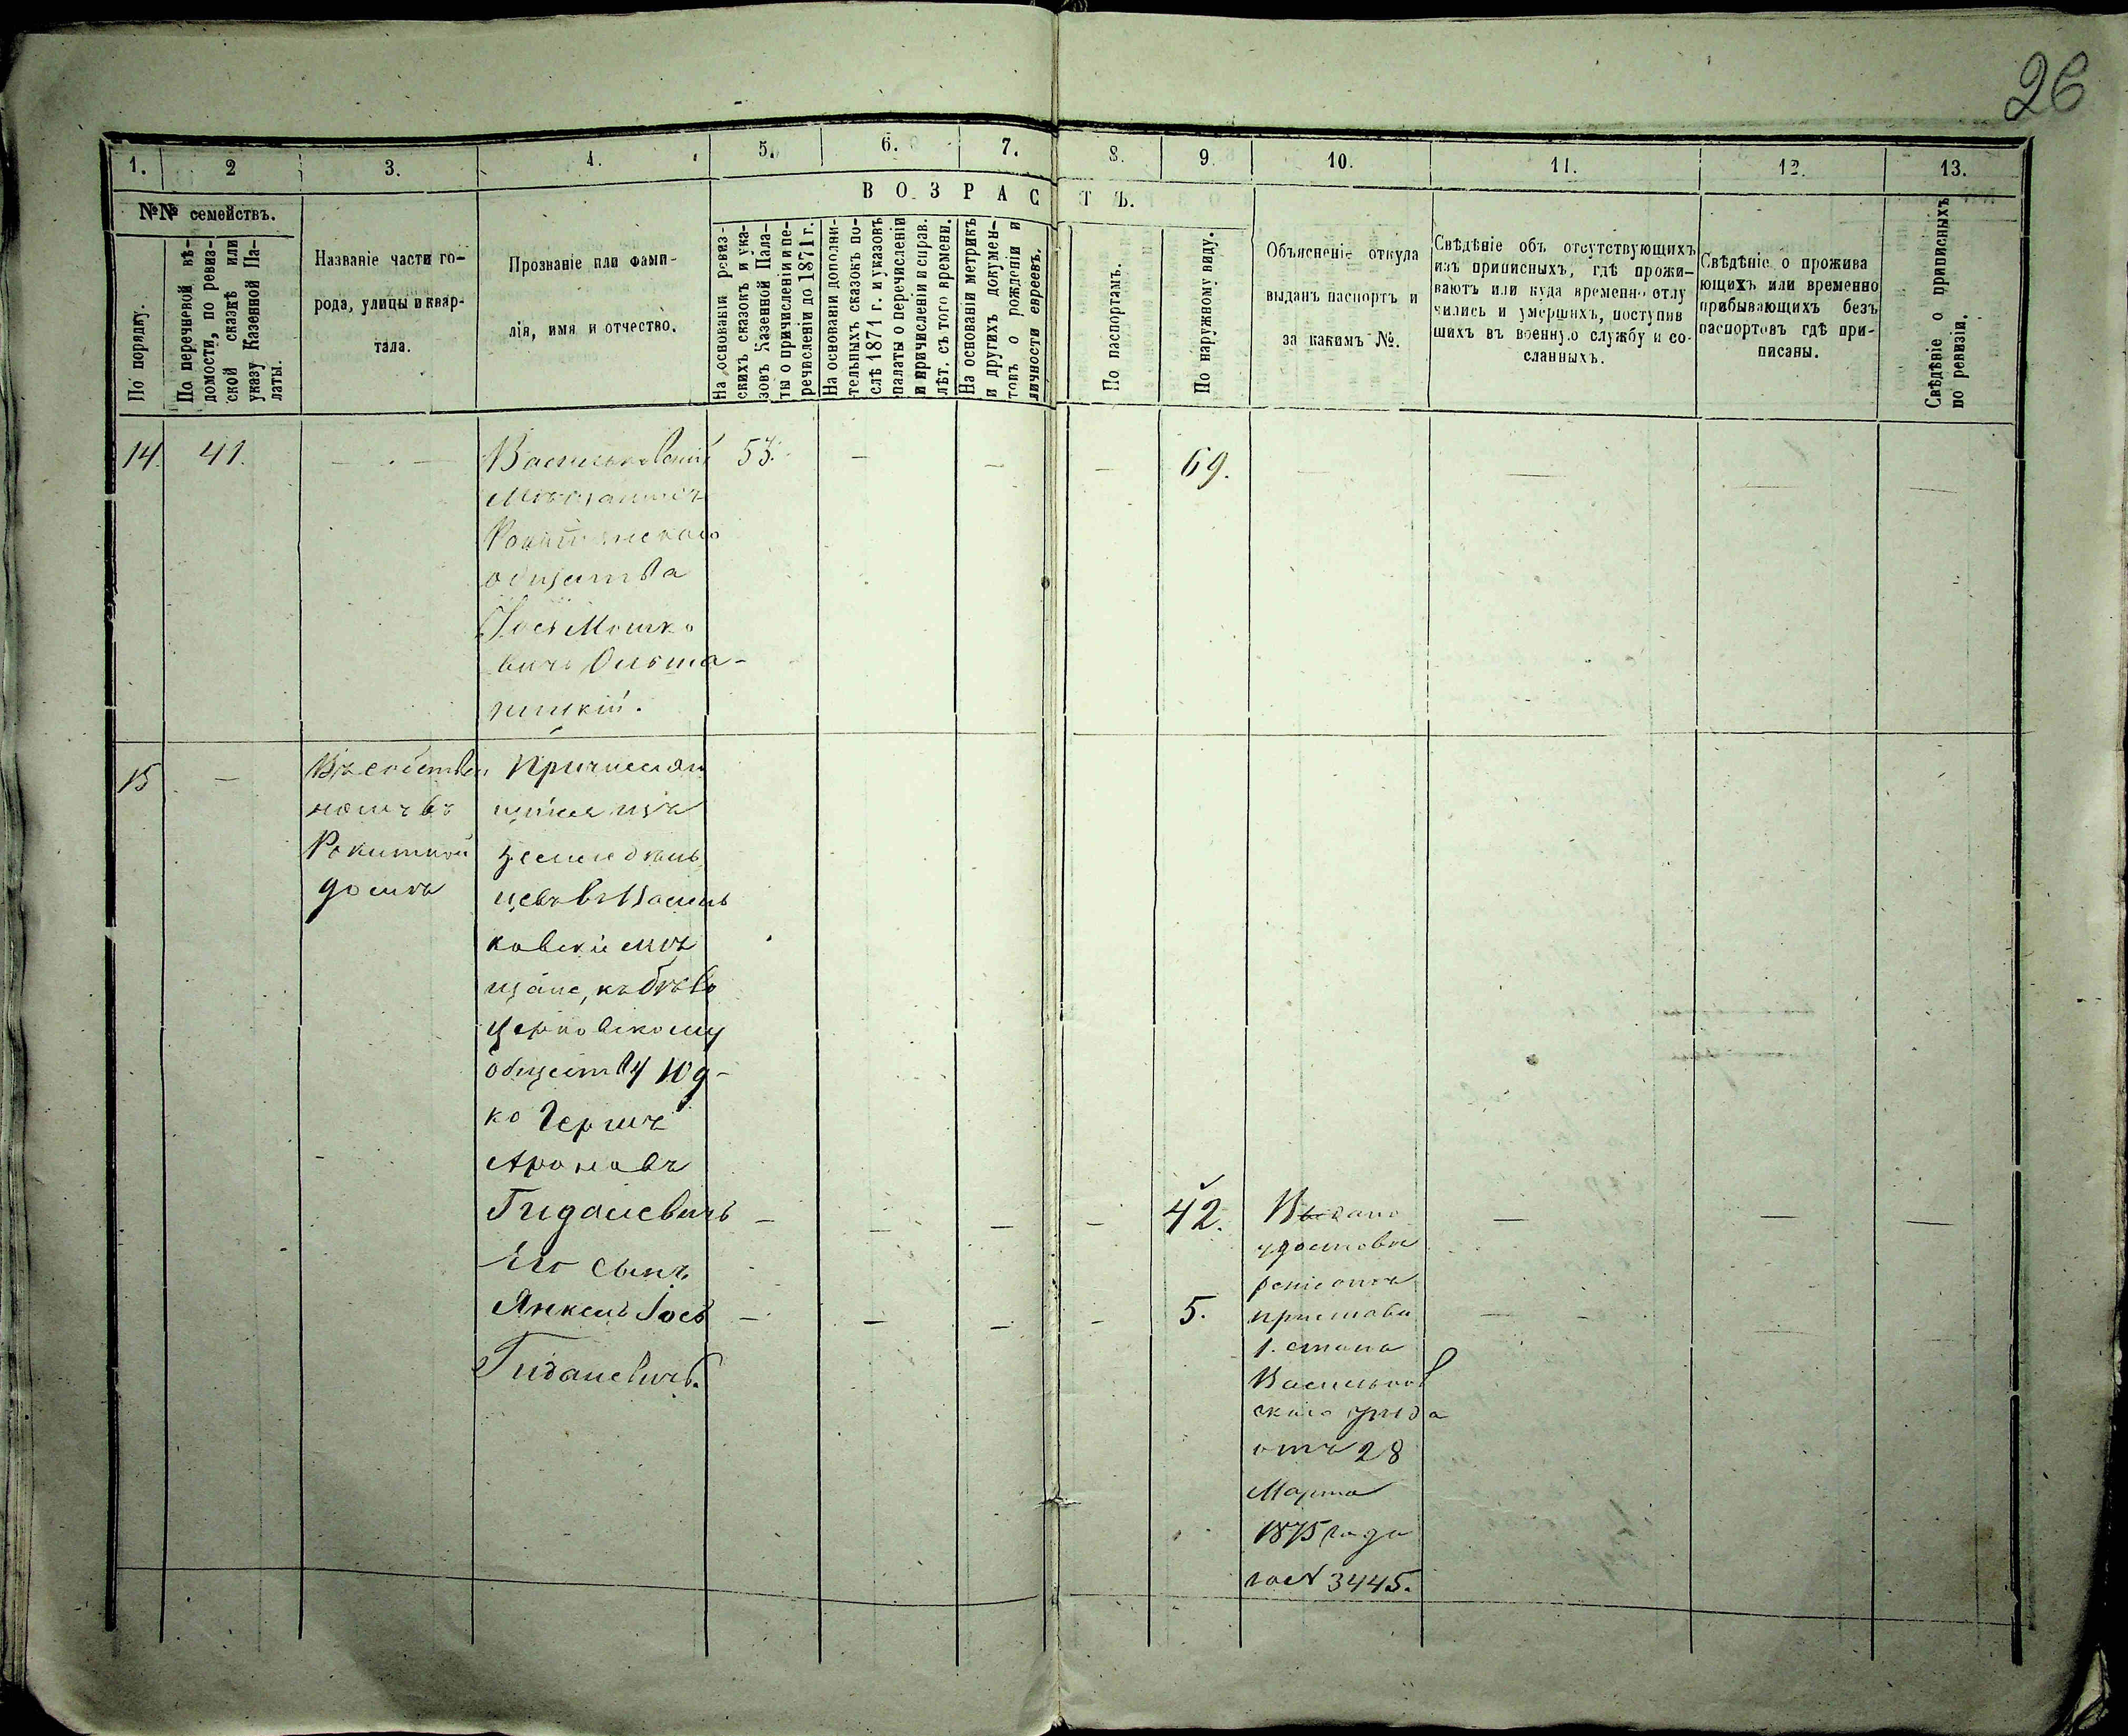 26
1. 2 3. 4. 5. 6. 7. 8. 9. 10. 11. 12. 13.
№№ семействъ.
По порядку.
По перечневой вѣ-
домости, по ревиз-
ской сказкѣ или
указу Казенной Па-
латы.
Названіе части го-
рода, улицы и квар-
тала.
Прозваніе или фами-
лія, имя и отчество.
ВОЗРАСТЪ.
На основаніи ревиз-
скихъ сказокъ и ука-
зовъ Казенной Пала-
ты о причисленіи и пе-
речисленіи до 1871 г.
На основаніи дополни-
тельныхъ сказокъ по-
слѣ 1871 г. и указовъ
палаты о перечисленіи
и причисленіи и справ.
лѣт. съ того времени.
На основаніи метрикъ
и другихъ докумен-
товъ о рожденіи и
личности евреевъ.
По паспортамъ.
По наружному виду.
Объясненіе откуда
выданъ паспортъ и
за какимъ №.
Свѣдѣніе объ отсутствующихъ
изъ приписныхъ, гдѣ прожи-
ваютъ или куда временно отлу
чились и умершихъ, поступив
шихъ въ военную службу и со-
сланныхъ.
Свѣдѣніе о прожива
ющихъ или временно
прибывающихъ безъ
паспортовъ гдѣ при-
писаны.
Свѣдѣніе о приписныхъ
по ревизіи.
14. 41. — . — Васильковскій 53. — — — 69. — — — —
Мѣщанинъ
Рокитянскаго
общества
Іось Мошко
вичь Ольша-
ницкій.
15 — Въ собствен
номъ въ
Рокитной
домѣ
Причисляю
щійся изъ
земледѣль
цевъ въ Василь
ковскіе мѣ
щане, къ Бѣло
церковскому
обществу Юд-
ко Гершъ
Ароновъ
Гидалевичъ — — — — 42. — — —
Его сынъ
Янкель Іось — — — — 5. — —
Гидалевичъ.
Выдано
удостовѣ
реніе отъ
пристава
1. стана
Васильков
скаго уѣзда
отъ 28
Марта
1875 года
за № 3445.